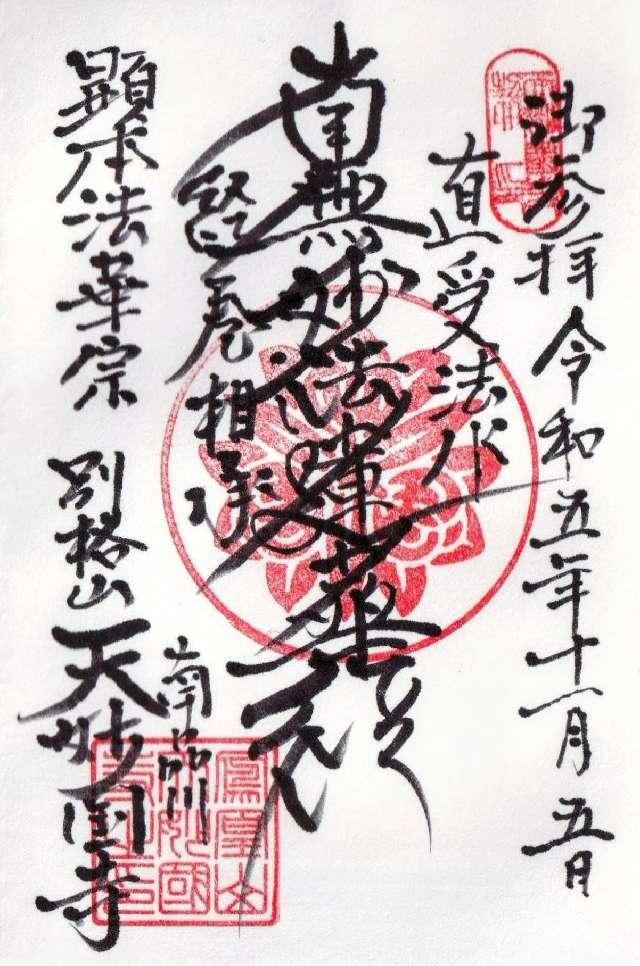 御参拝 令和五年十一月五日
直受法水
南無妙法蓮華経
経巻相承
南品川
顕本法華宗 別格山 天妙国寺